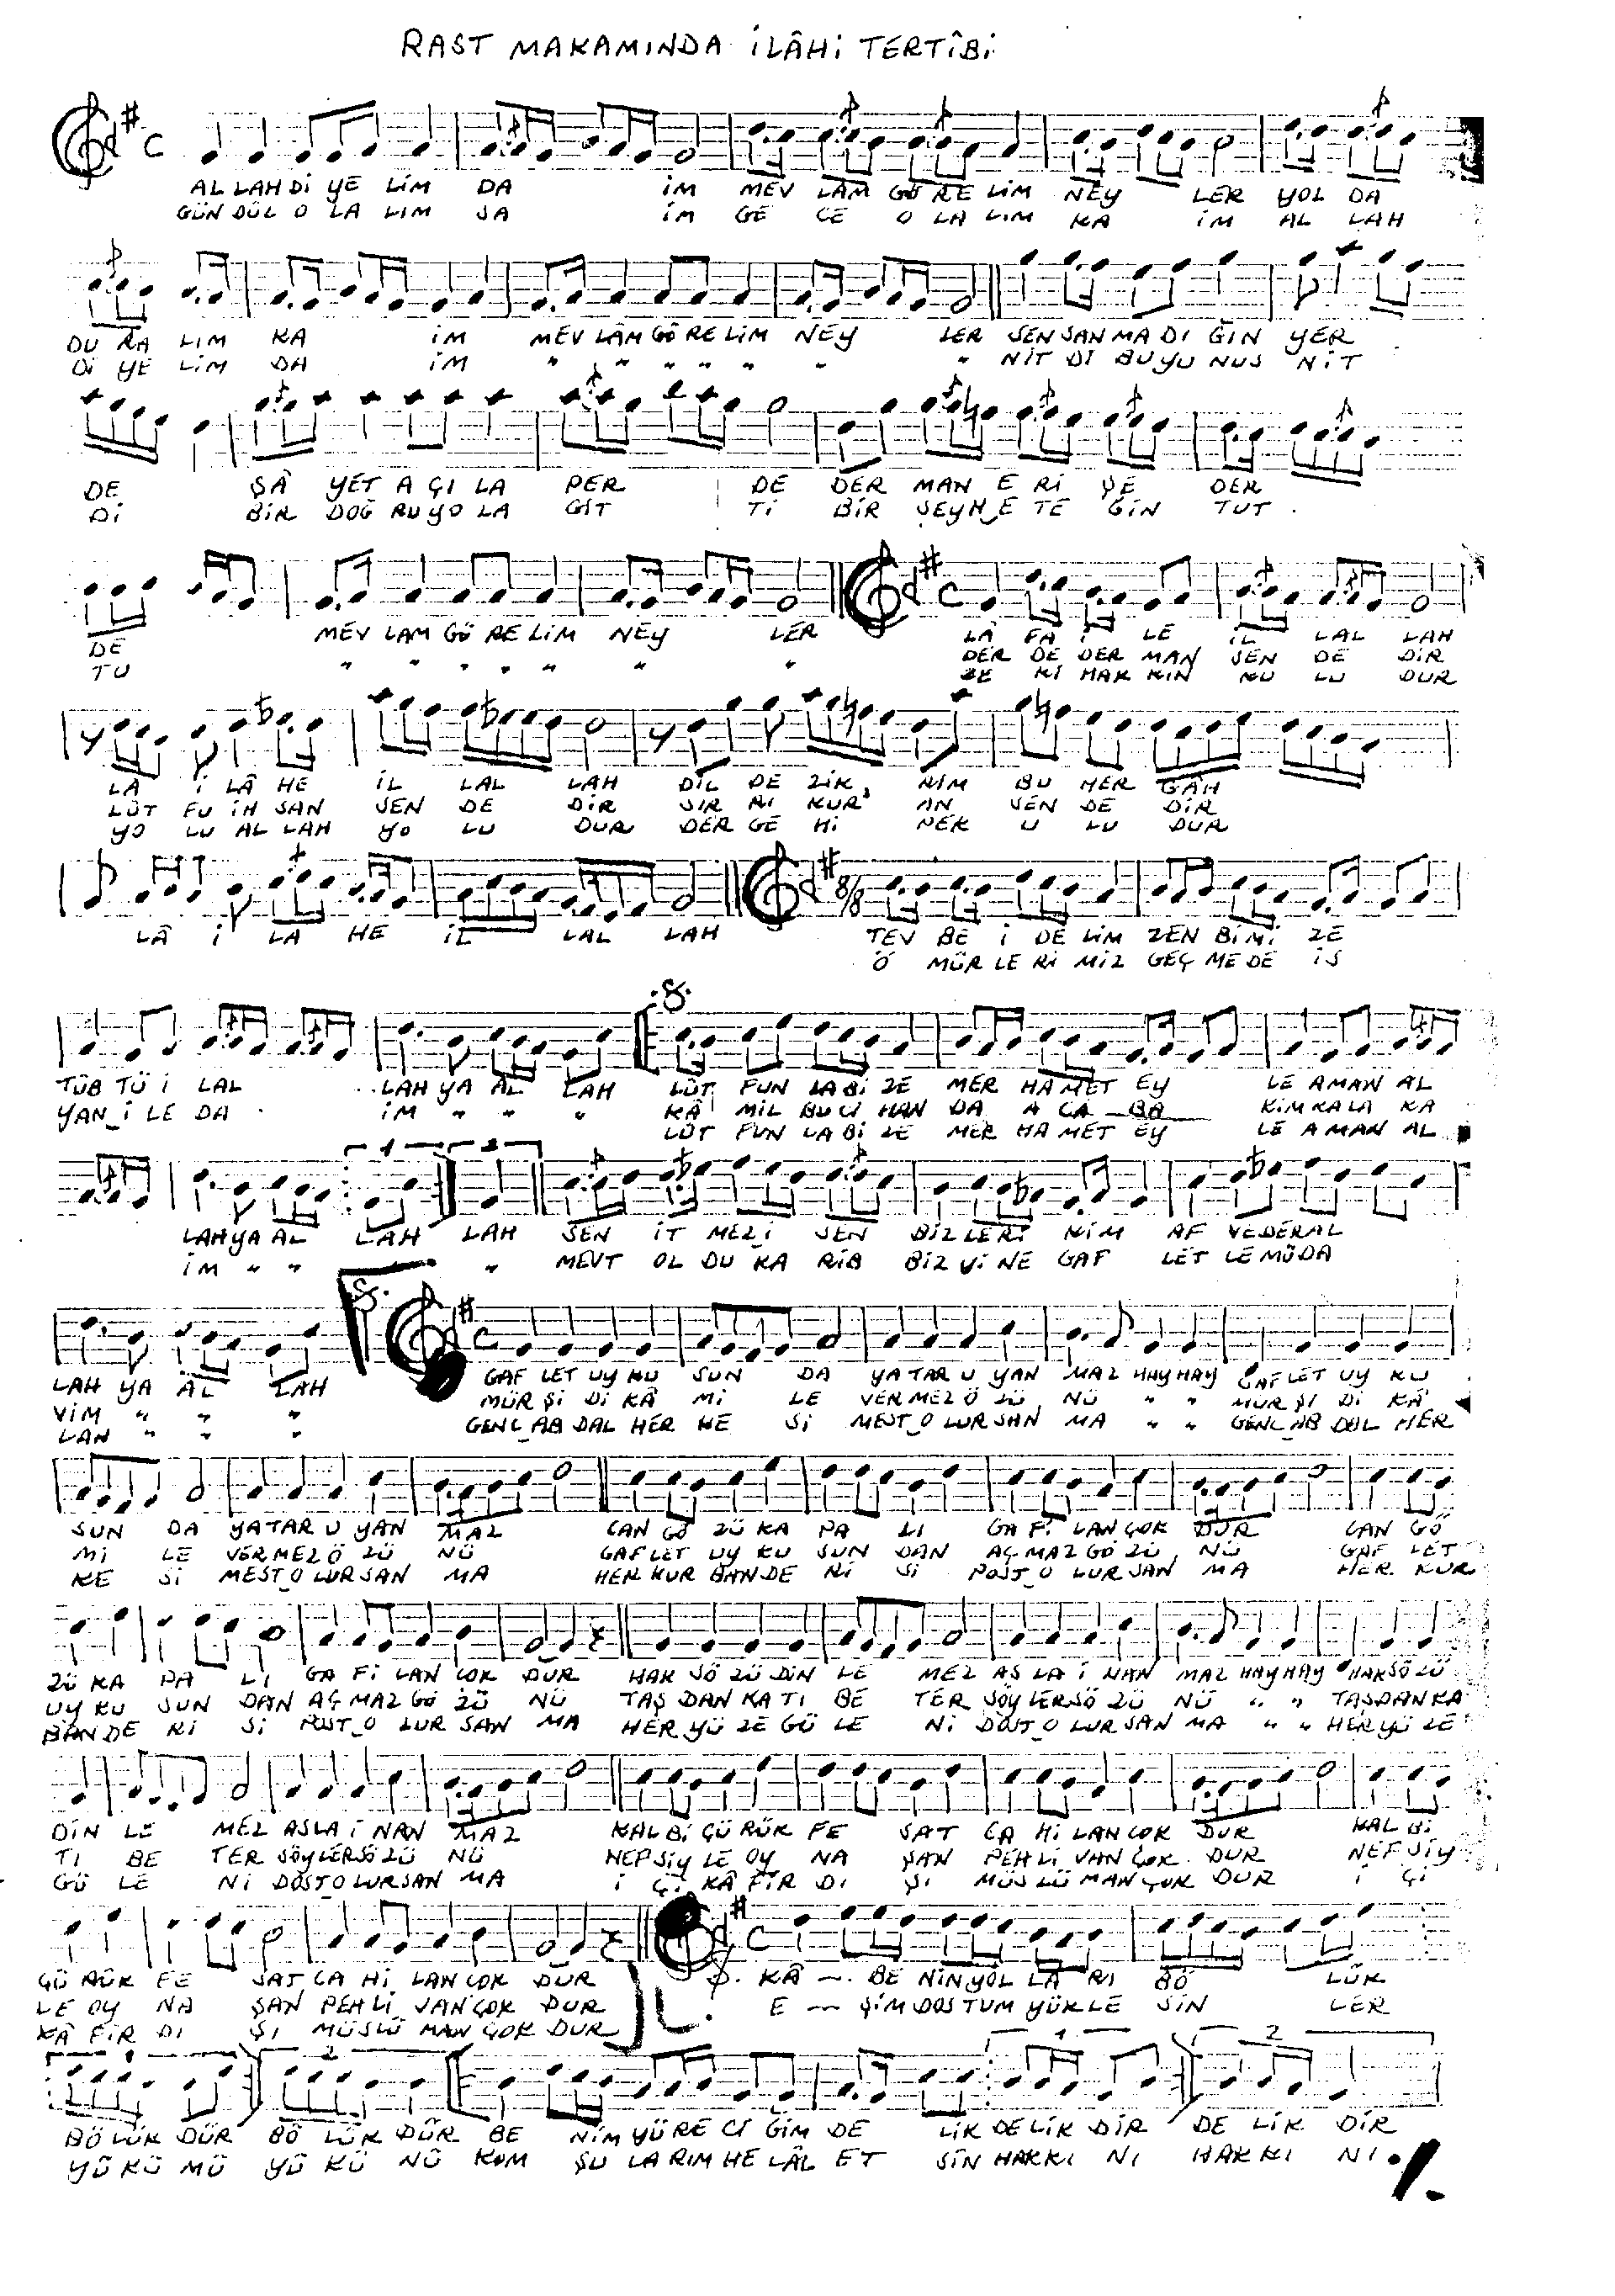 RAST MAKAMINDA İLÂHİ TERTÎBİ
AL LAH Dİ YE LİM DA İM MEV LÂM GÖ RE LİM NEY LER YOL DA
GÜN DÜL O LA LIM SA İM GE CE O LA LIM KA İM AL LAH
DU RA LIM KA İM MEV LÂM GÖ RE LİM NEY LER SEN SAN MA DI ĞIN YER
Dİ YE LİM DA İM " " " " " " " NİT Dİ BU YU NUS NİT
DE ŞÂ YET A ÇI LA PER DE DER MAN E Rİ ŞE DER
Dİ BİR DOĞ RU YO LA GİT Tİ BİR ŞEYH E TE GİN TUT
DE MEV LAM GÖ RE LİM NEY LER LÂ FA İ LE İL LAL LAH
TU " " " " " " " DER DE DER MAN SEN DE DİR
ZE Kİ HAK KIN KU LU DUR
LÂ İ LÂ HE İL LAL LAH DİL DE ZİK NİM BU HER GÂH
LÜT FU İH SAN SEN DE DİR SIR RI KUR' AN SEN DE DİR
YO LU AL LAH YO LU DUR DER GE Hİ NEK U LU DUR
LÂ İ LA HE İL LAL LAH TEV BE İ DE LİM ZEN Bİ Mİ ZE
Ö MÜR LE Rİ MİZ GEÇ ME DE İS
TÛB TÜ İ LAL LAH YA AL LAH LÜT FUN LA Bİ ZE MER HA MET EY LE AMAN AL
YAN İ LE DA İM " " " KÂ MİL BU CİHAN DA A CA BA KİM KALA KA
LÜT FUN LA Bİ ZE MER HA MET EY LE AMAN AL
1 2
LAH YA AL LAH LAH SEN İT MEZ İ SEN BİZ LERİ KİM AF VEDERAL
İM " " " MEVT OL DU KA RİB BİZ Yİ NE GAF LET LE MÜDA
LAH YA AL LAH GAF LET UY KU SUN DA YA TAR U YAN MAZ HAY HAY GAF LET UY KU
VİM " " " MÜR Şİ Dİ KÂ Mİ LE VER MEZ Ö ZÜ NÜ " " MÜR Şİ Dİ KÂ
LAN " " " GENC AB DAL HER KE Sİ MEST O LUR SAN MA " " GENC AB DAL HER
SUN DA YA TAR U YAN MAZ CAN GÖ ZÜ KA PA LI GA Fİ LAN ÇOK DUR CAN GÖ
Mİ LE VER MEZ Ö ZÜ NÜ GAF LET UY KU SUN DAN AÇ MAZ GÖ ZÜ NÜ GAF LET
KE Sİ MEST O LUR SAN MA HER KUR BAN DE Rİ Sİ POST O LUR SAN MA HER KUR
ZÜ KA PA LI GA Fİ LAN ÇOK DUR HAK SÖ ZÜ DİN LE MEZ AS LA İ NAN MAZ HAY HAY HAK SÖ ZÜ
UY KU SUN DAN AÇ MAZ GÖ ZÜ NÜ TAŞ DAN KA TI BE TER SÖY LER SÖ ZÜ NÜ " " TAŞ DAN KA
BAN DE Rİ Sİ POST O LUR SAN MA HER YÜ ZE GÜ LE Nİ DOST O LUR SAN MA " " HER YÜ ZE
DİN LE MEZ AS LA İ NAN MAZ KAL Bİ ÇÜ RÜK FE SAT CA Hİ LAN ÇOK DUR KAL Bİ
TI BE TER SÖY LER SÖ ZÜ NÜ NEF SİY LE OY NA ŞAN PEH Lİ VAN ÇOK DUR NEF SİY
GÜ LE Nİ DOST O LUR SAN MA İ Çİ KÂ FİR DI ŞI MÜS LÜ MAN ÇOK DUR İ Çİ
ÇÜ RÜK FE SAT CA Hİ LAN ÇOK DUR KÂ BE NİN YOL LA RI BÖ LÜK
LE OY NA ŞAN PEH Lİ VAN ÇOK DUR E ŞİM DOS TUM YÜK LE SİN LER
KÂ FİR DI ŞI MÜS LÜ MAN ÇOK DUR
1 2 1 2
BÖ LÜK DÜR BÖ LÜK DÜR BE NİM YÜ RE CİĞİM DE LİK DE LİK DİR DE LİK DİR
YÜ KÜ MÜ YÜ KÜ NÜ KOM ŞU LA RIM HE LÂL ET SİN HAK KI NI HAK KI NI